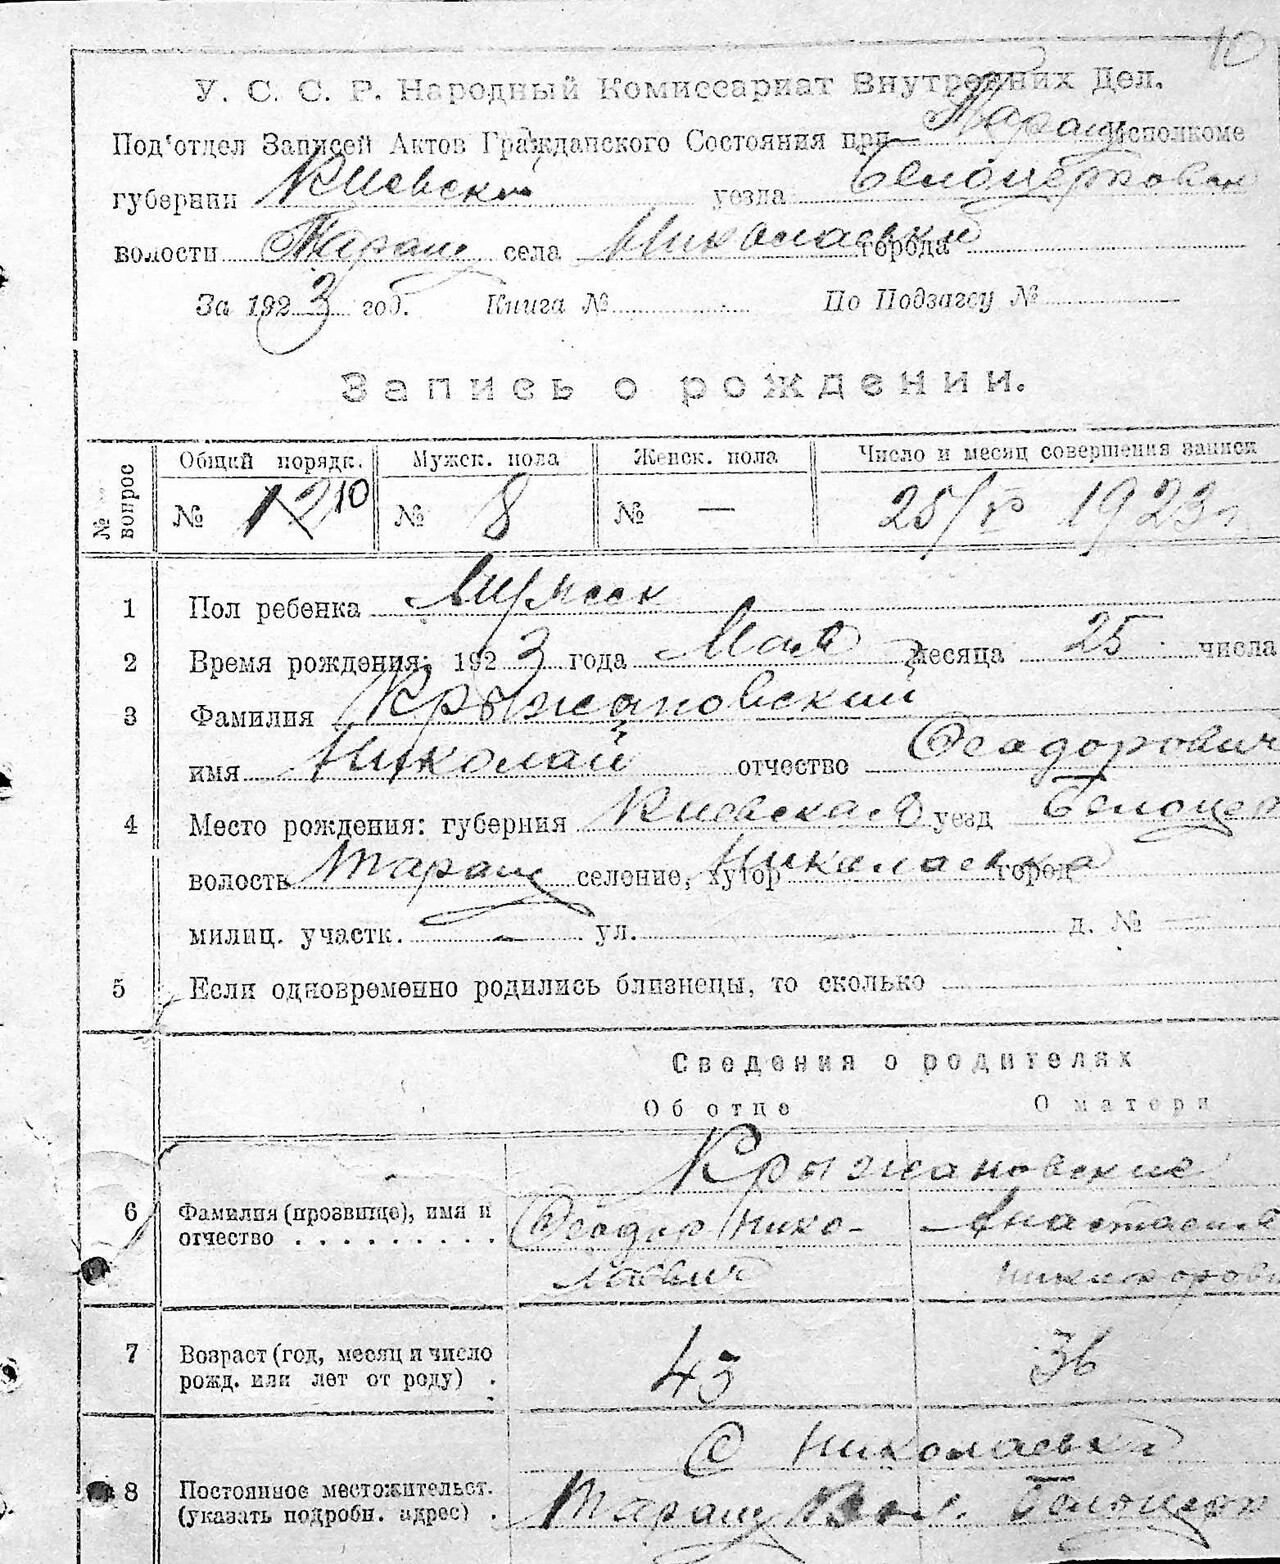 10
У. С. С. Р. Народный Комиссариат Внутренних Дел.
Под'отдел Записей Актов Гражданского Состояния при Таращ Исполкоме
губернии Киевской уезда Белоцерковск
волости Таращ села Николаевки города
За 1923 год. Книга № По Подзагсу №
Запись о рождении.
№ вопрос Общий порядк. Мужск. пола Женск. пола Число и месяц совершения записи
№ 10 № 8 № — 25/V 1923 г.
1 Пол ребенка Мужеск
2 Время рождения: 1923 года Мая месяца 25 числа
3 Фамилия Крыжановский
имя Николай отчество Феодорович
4 Место рождения: губерния Киевская уезд Белоцер
волость Таращ селение, хутор Николаевка город
милиц. участк. — ул. — д. № —
5 Если одновременно родились близнецы, то сколько
Сведения о родителях
Об отце О матери
Крыжановские
6 Фамилия (прозвище), имя и Феодор Нико- Анастасия
отчество . . . . . . . . . лаевич Никифоров
7 Возраст (год, месяц и число 43 36
рожд. или лет от роду) .
С Николаевка
8 Постоянное местожительст. Таращ Вол. Белоцерк
(указать подробн. адрес) .